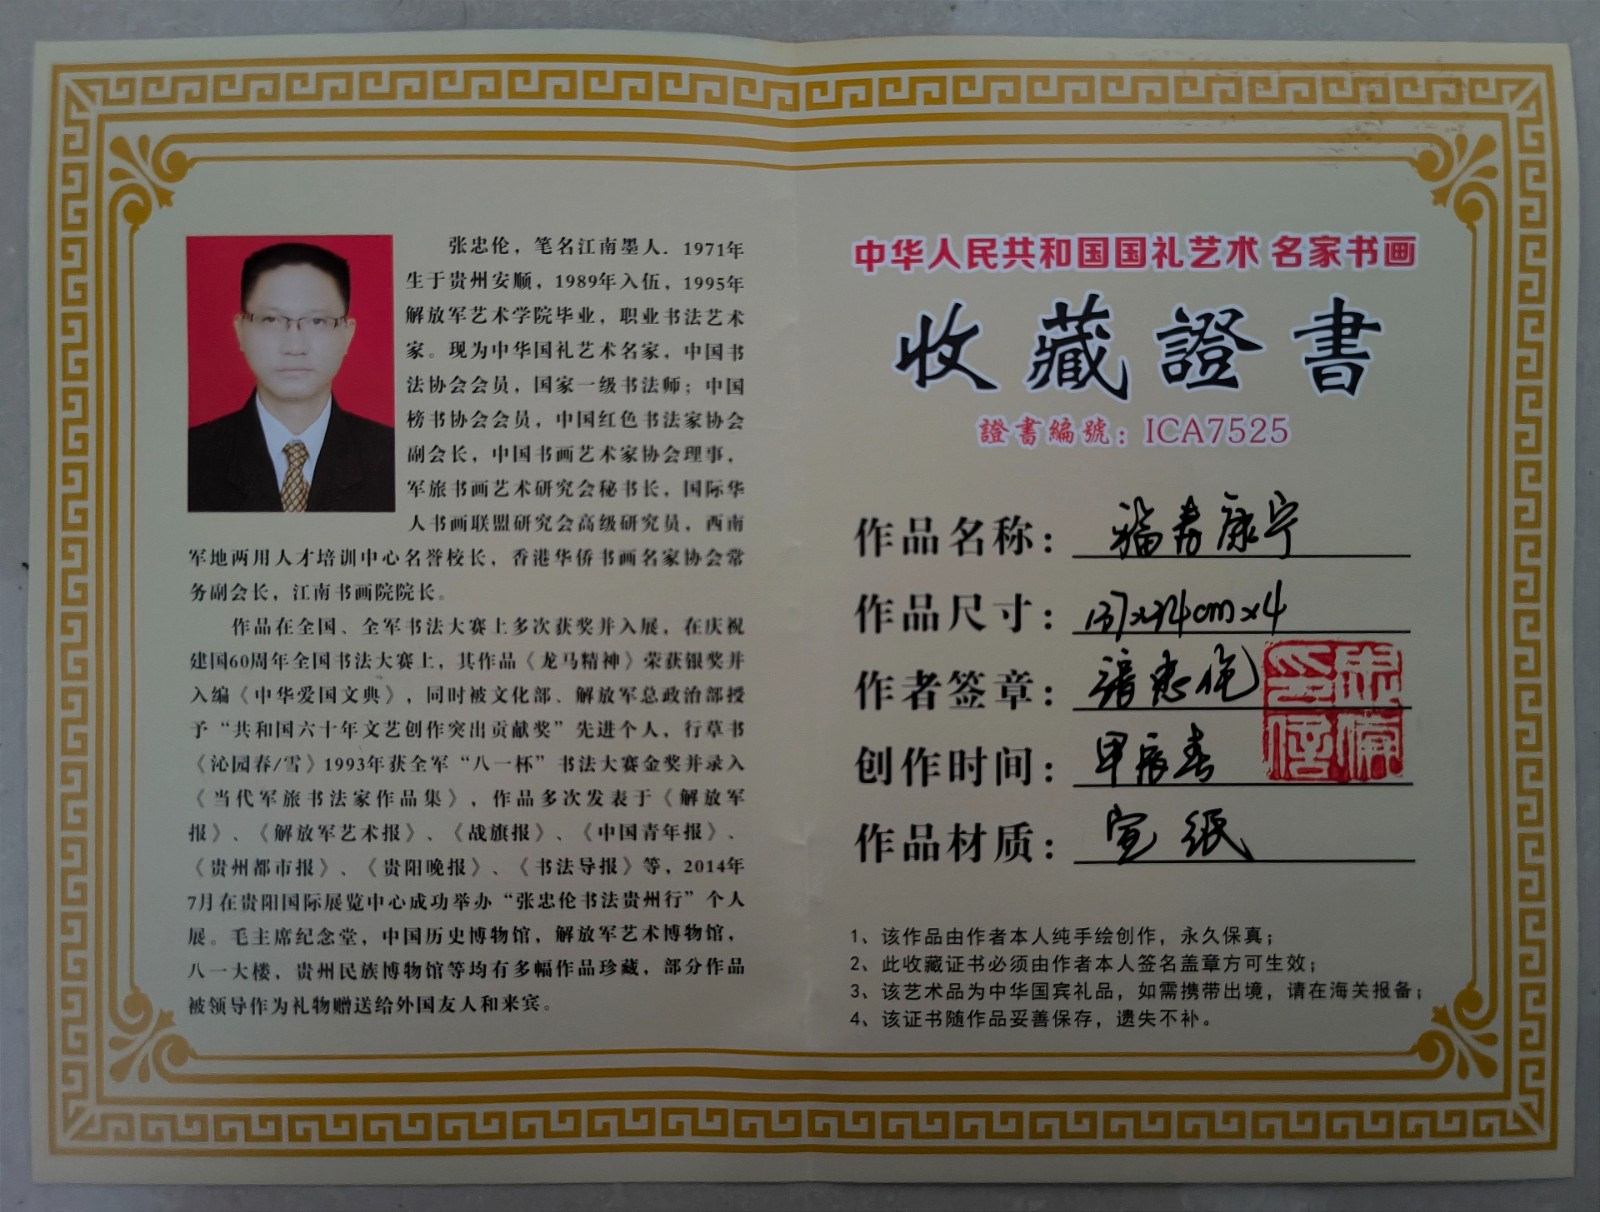 张忠伦，笔名江南墨人．1971年
生于贵州安顺，1989年入伍，1995年
解放军艺术学院毕业，职业书法艺术
家。现为中华国礼艺术名家，中国书
法协会会员，国家一级书法师；中国
榜书协会会员，中国红色书法家协会
副会长，中国书画艺术家协会理事，
军旅书画艺术研究会秘书长，国际华
人书画联盟研究会高级研究员，西南
军地两用人才培训中心名誉校长，香港华侨书画名家协会常
务副会长，江南书画院院长。
作品在全国、全军书法大赛上多次获奖并入展，在庆祝
建国60周年全国书法大赛上，其作品《龙马精神》荣获银奖并
入编《中华爱国文典》，同时被文化部、解放军总政治部授
予“共和国六十年文艺创作突出贡献奖”先进个人，行草书
《沁园春/雪》1993年获全军“八一杯”书法大赛金奖并录入
《当代军旅书法家作品集》，作品多次发表于《解放军
报》、《解放军艺术报》、《战旗报》、《中国青年报》、
《贵州都市报》、《贵阳晚报》、《书法导报》等，2014年
7月在贵阳国际展览中心成功举办“张忠伦书法贵州行”个人
展。毛主席纪念堂，中国历史博物馆，解放军艺术博物馆，
八一大楼，贵州民族博物馆等均有多幅作品珍藏，部分作品
被领导作为礼物赠送给外国友人和来宾。
中华人民共和国国礼艺术 名家书画
收藏證書
證書編號：ICA7525
作品名称：福寿康宁
作品尺寸：137x34cmx4
作者签章：张忠伦
创作时间：甲辰春
作品材质：宣纸
1、该作品由作者本人纯手绘创作，永久保真；
2、此收藏证书必须由作者本人签名盖章方可生效；
3、该艺术品为中华国宾礼品，如需携带出境，请在海关报备；
4、该证书随作品妥善保存，遗失不补。